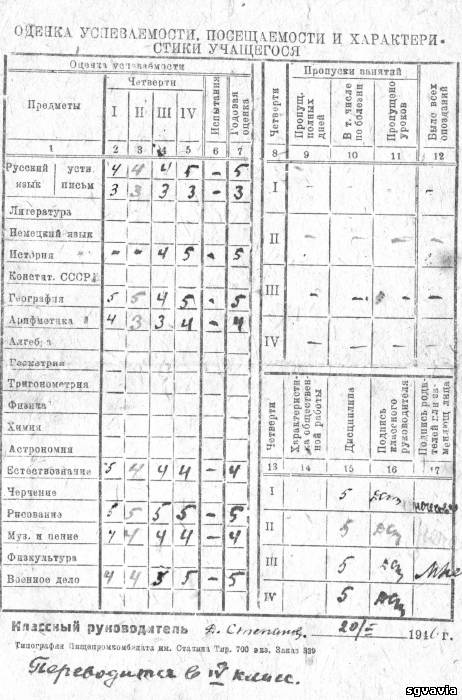 ОЦЕНКА УСПЕВАЕМОСТИ, ПОСЕЩАЕМОСТИ И ХАРАКТЕРИ-
СТИКИ УЧАЩЕГОСЯ
Оценка успеваемости
Предметы Четверти Испытания Годовая оценка
I II III IV
1 2 3 4 5 6 7
Русский язык устн. 4 4 4 5 – 5
письм 3 3 3 3 – 3
Литература
Немецкий язык
История - - 4 5 - 5
Констит. СССР
География 5 5 4 5 - 5
Арифметика 4 3 3 4 - 4
Алгебра
Геометрия
Тригонометрия
Физика
Химия
Астрономия
Естествознание 5 4 4 4 – 4
Черчение
Рисование 5 5 5 5 – 5
Муз. и пение 4 4 4 4 – 4
Физкультура
Военное дело 4 4 5 5 – 5
Пропуски занятий
Четверти Пропущ. полных дней В т. числе по болезни Пропущено уроков Было всех опозданий
8 9 10 11 12
I – – – -
II – – – –
III – – – –
IV – – – –
Четверти Характеристика обществен-ной работы Дисциплина Подпись классного руководителя Подпись родителей
13 14 15 16 17
I 5
II 5
III 5
IV 5
Классный руководитель
20/V 194 г.
Типография Пищепромкомбината им. Сталина Тир. 700 экз. Заказ 339
Переводится в IV класс.
sgvavia